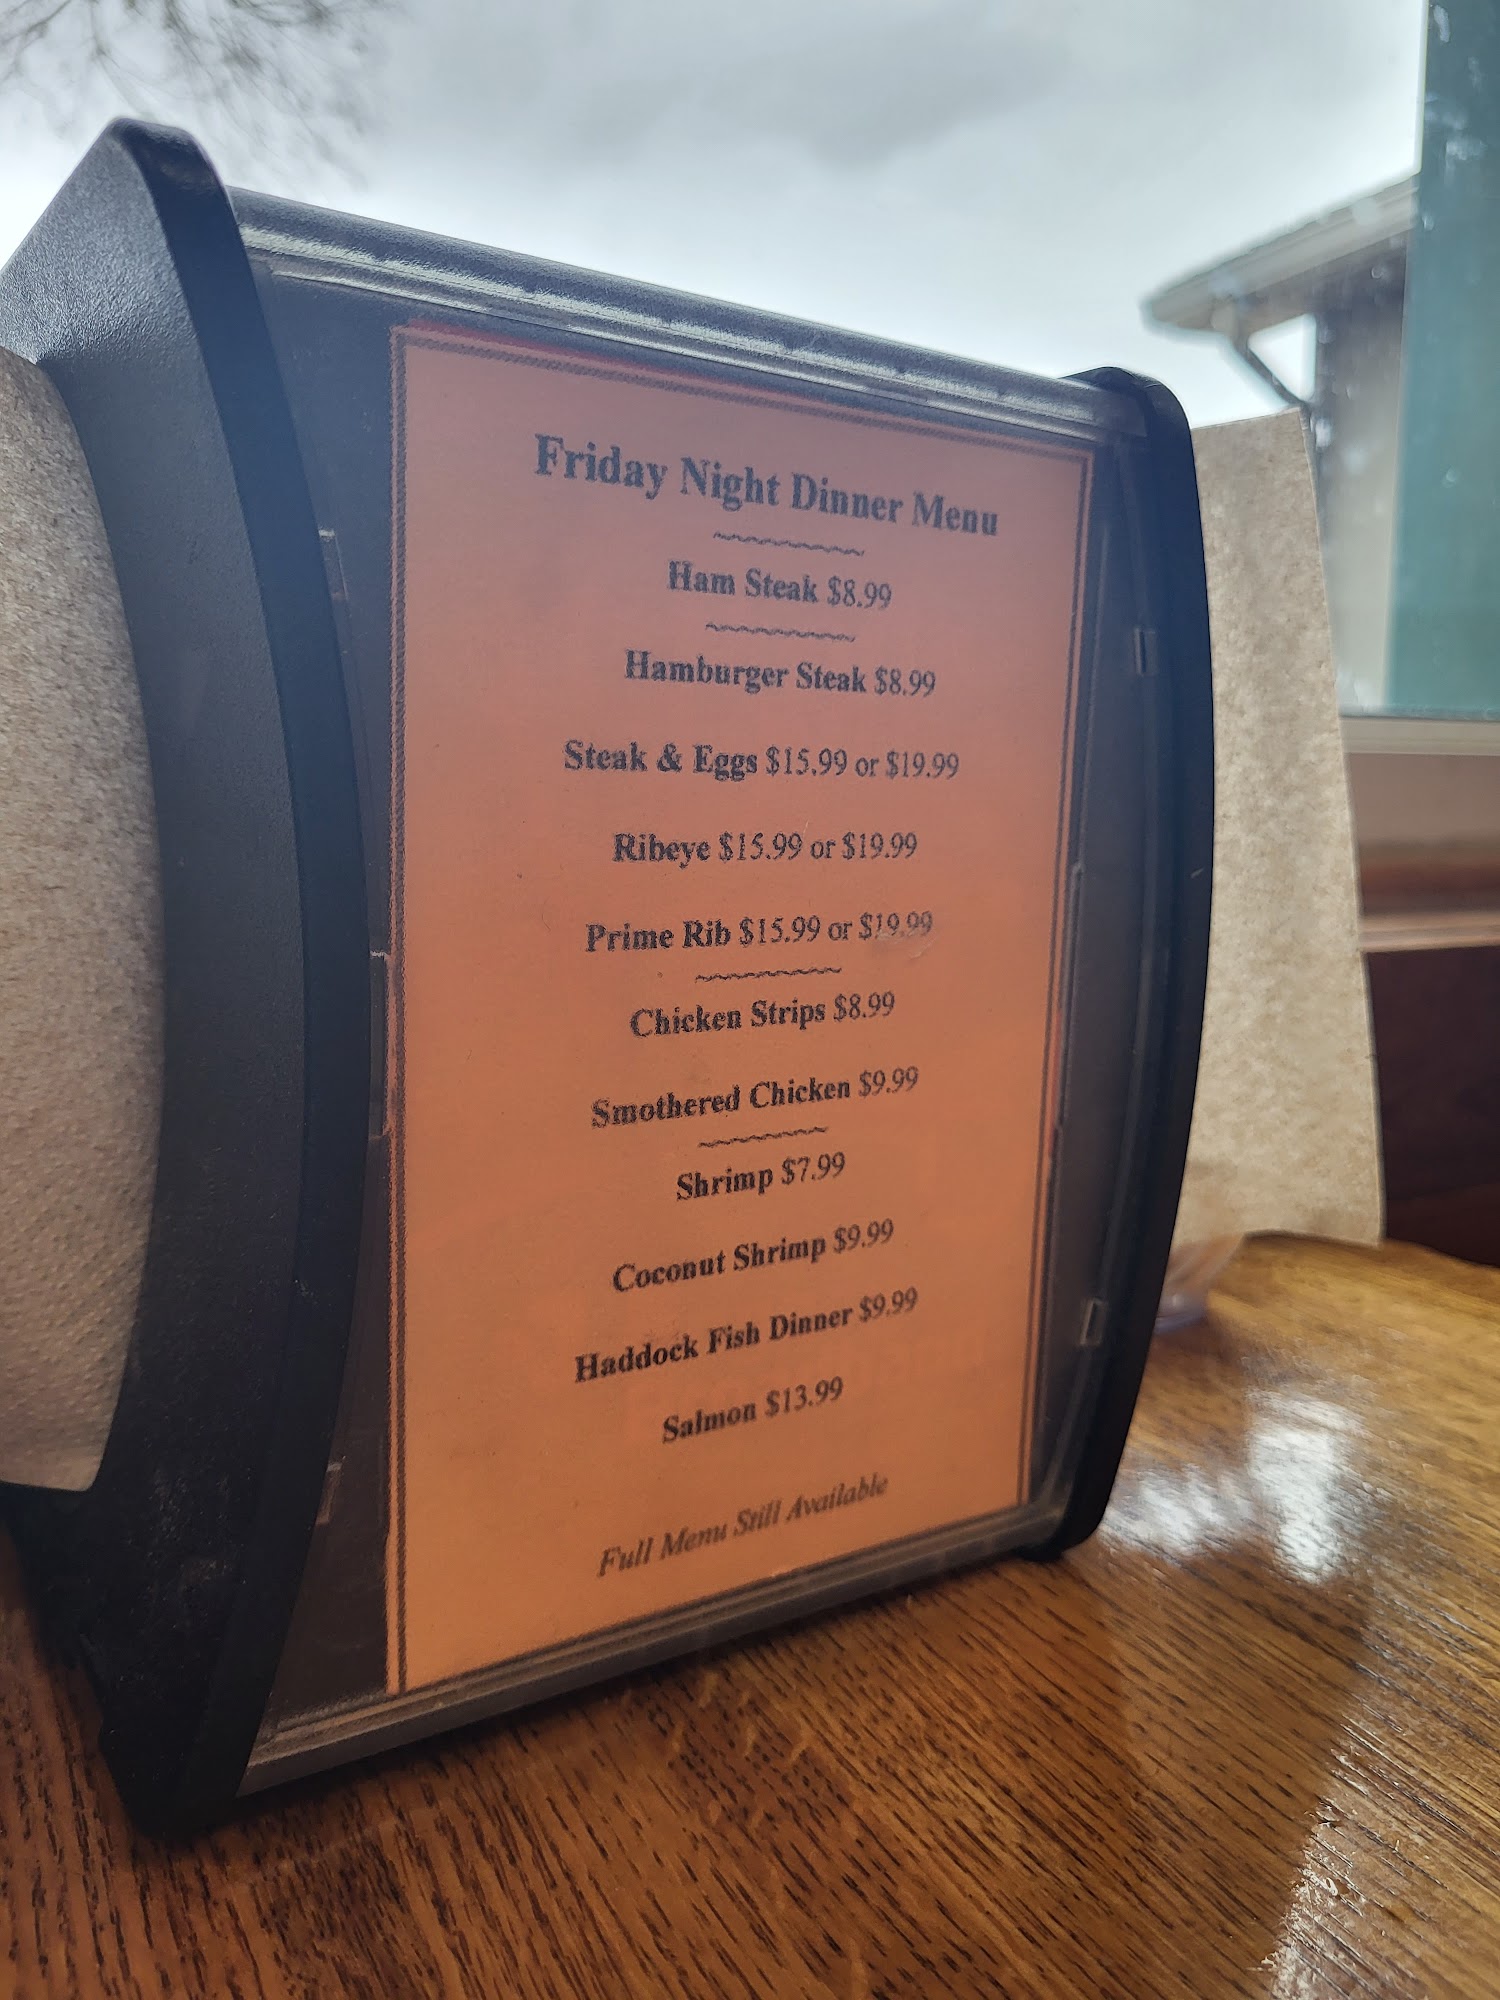 Friday Night Dinner Menu
Ham Steak $8.99
Hamburger Steak $8.99
Steak & Eggs $15.99 or $19.99
Ribeye $15.99 or $19.99
Prime Rib $15.99 or $19.99
Chicken Strips $8.99
Smothered Chicken $9.99
Shrimp $7.99
Coconut Shrimp $9.99
Haddock Fish Dinner $9.99
Salmon $13.99
Full Menu Still Available